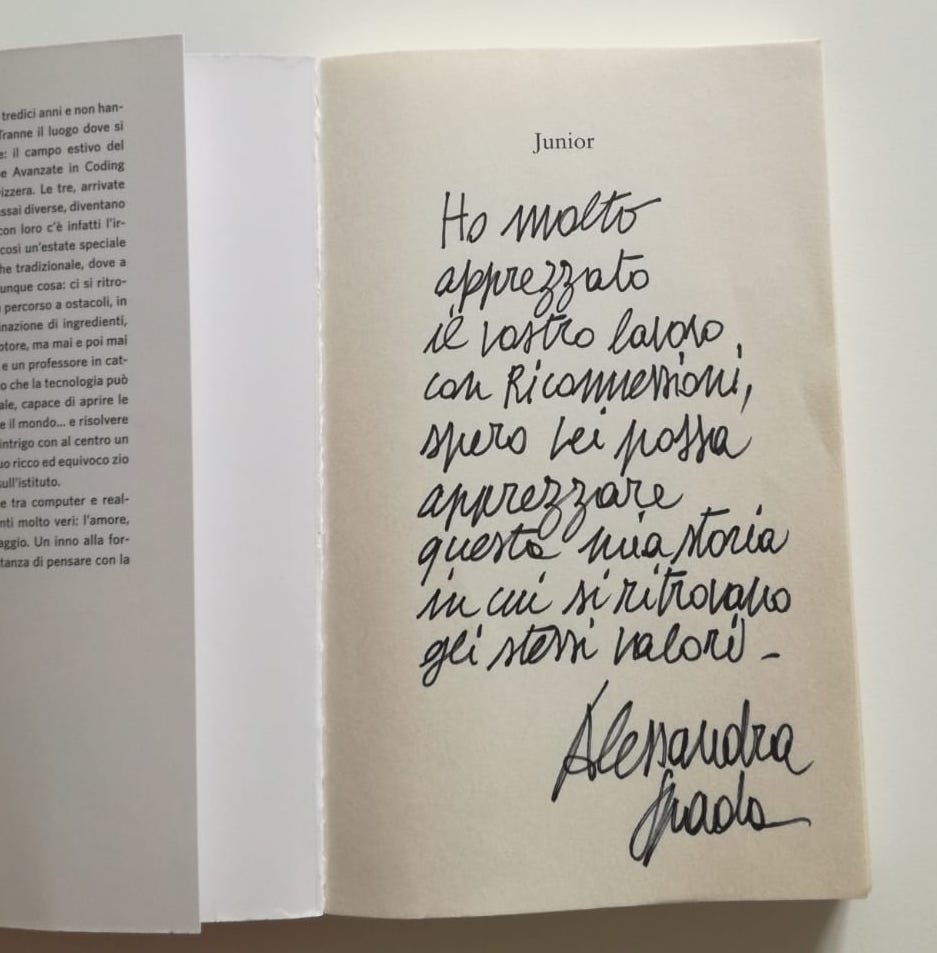 tredici anni e non han-
Tranne il luogo dove si
e: il campo estivo del
e Avanzate in Coding
izzera. Le tre, arrivate
ssai diverse, diventano
con loro c'è infatti l'ir-
così un'estate speciale
he tradizionale, dove a
unque cosa: ci si ritro-
percorso a ostacoli, in
inazione di ingredienti,
otore, ma mai e poi mai
e un professore in cat-
o che la tecnologia può
ale, capace di aprire le
e il mondo... e risolvere
intrigo con al centro un
uo ricco ed equivoco zio
sull'istituto.
e tra computer e real-
nti molto veri: l'amore,
aggio. Un inno alla for-
tanza di pensare con la
Junior
Ho molto
apprezzato
il vostro lavoro
con Riconnessioni,
spero Lei possa
apprezzare
questa mia storia
in cui si ritrovano
gli stessi valori -
Alessandra
Spada